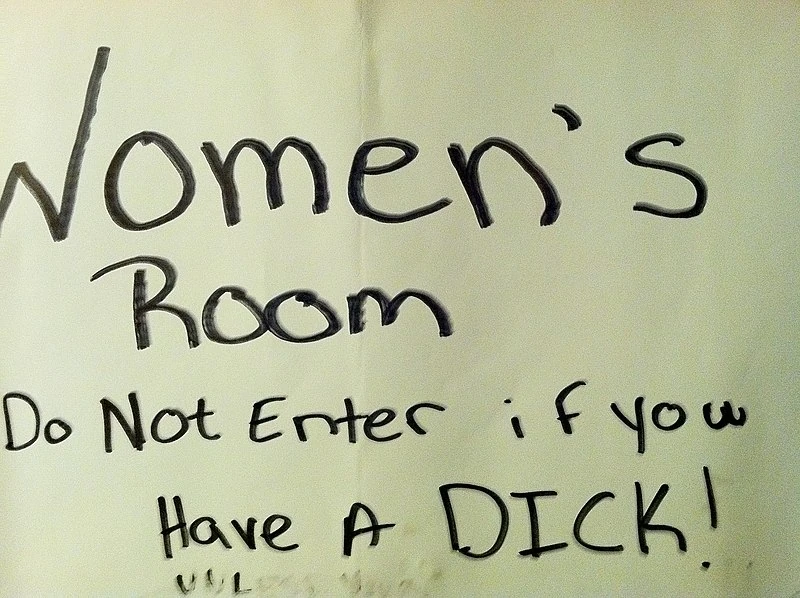 Women's
Room
Do Not Enter if you
Have A DICK!